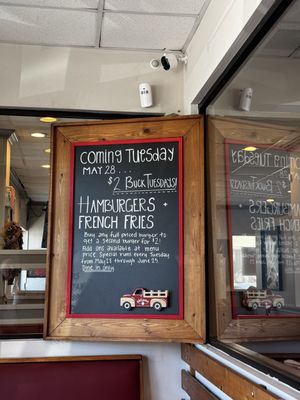 Coming Tuesday
May 28....
$2 Buck Tuesdays!
Hamburgers +
French Fries
Buy any full priced burger to
get a second burger for $2!
Add ons available at menu
price. Special runs every Tuesday
from May 28 through June 25.
Dine in only